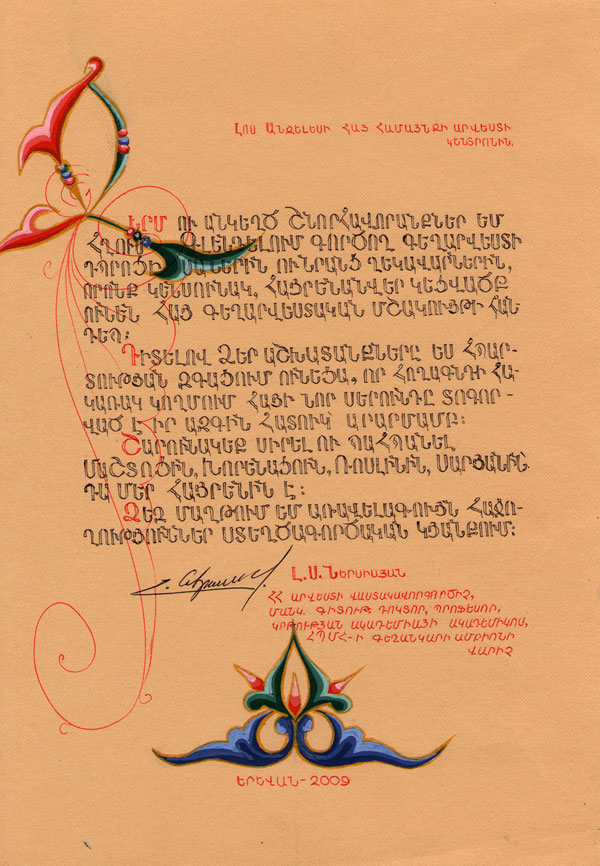 Լոս Անջելեսի հայ համայնքի արվեստի
կենտրոնին.
Ջերմ ու անկեղծ շնորհավորանքներ եմ
հղում Գլենդելում գործող գեղարվեստի
դպրոցի սաներին ու նրանց ղեկավարներին,
որոնք կենսունակ, հայրենանվեր կեցվածք
ունեն հայ գեղարվեստական մշակույթի հան-
դեպ:
Դիտելով Ձեր աշխատանքները ես հպար-
տության զգացում ունեցա, որ հողագնդի հա-
կառակ կողմում հայի նոր սերունդը տոգոր-
ված է իր ազգին հատուկ արարմամբ:
Շարունակեք սիրել ու պահպանել
Մաշտոցին, Խորենացուն, Ռոսլինին, Սարյանին.
դա մեր հայրենին է:
Ձեզ մաղթում եմ առավելագույն հաջո-
ղություններ ստեղծագործական կյանքում:
Լ.Ս.Ներսիսյան
ՀՀ արվեստի վաստակավոր գործիչ,
մանկ. գիտութ. դոկտոր, պրոֆեսոր,
կրթության ակադեմիայի ակադեմիկոս,
ՀՊՄՀ-ի գեղանկարի ամբիոնի
վարիչ
Երեվան-2009